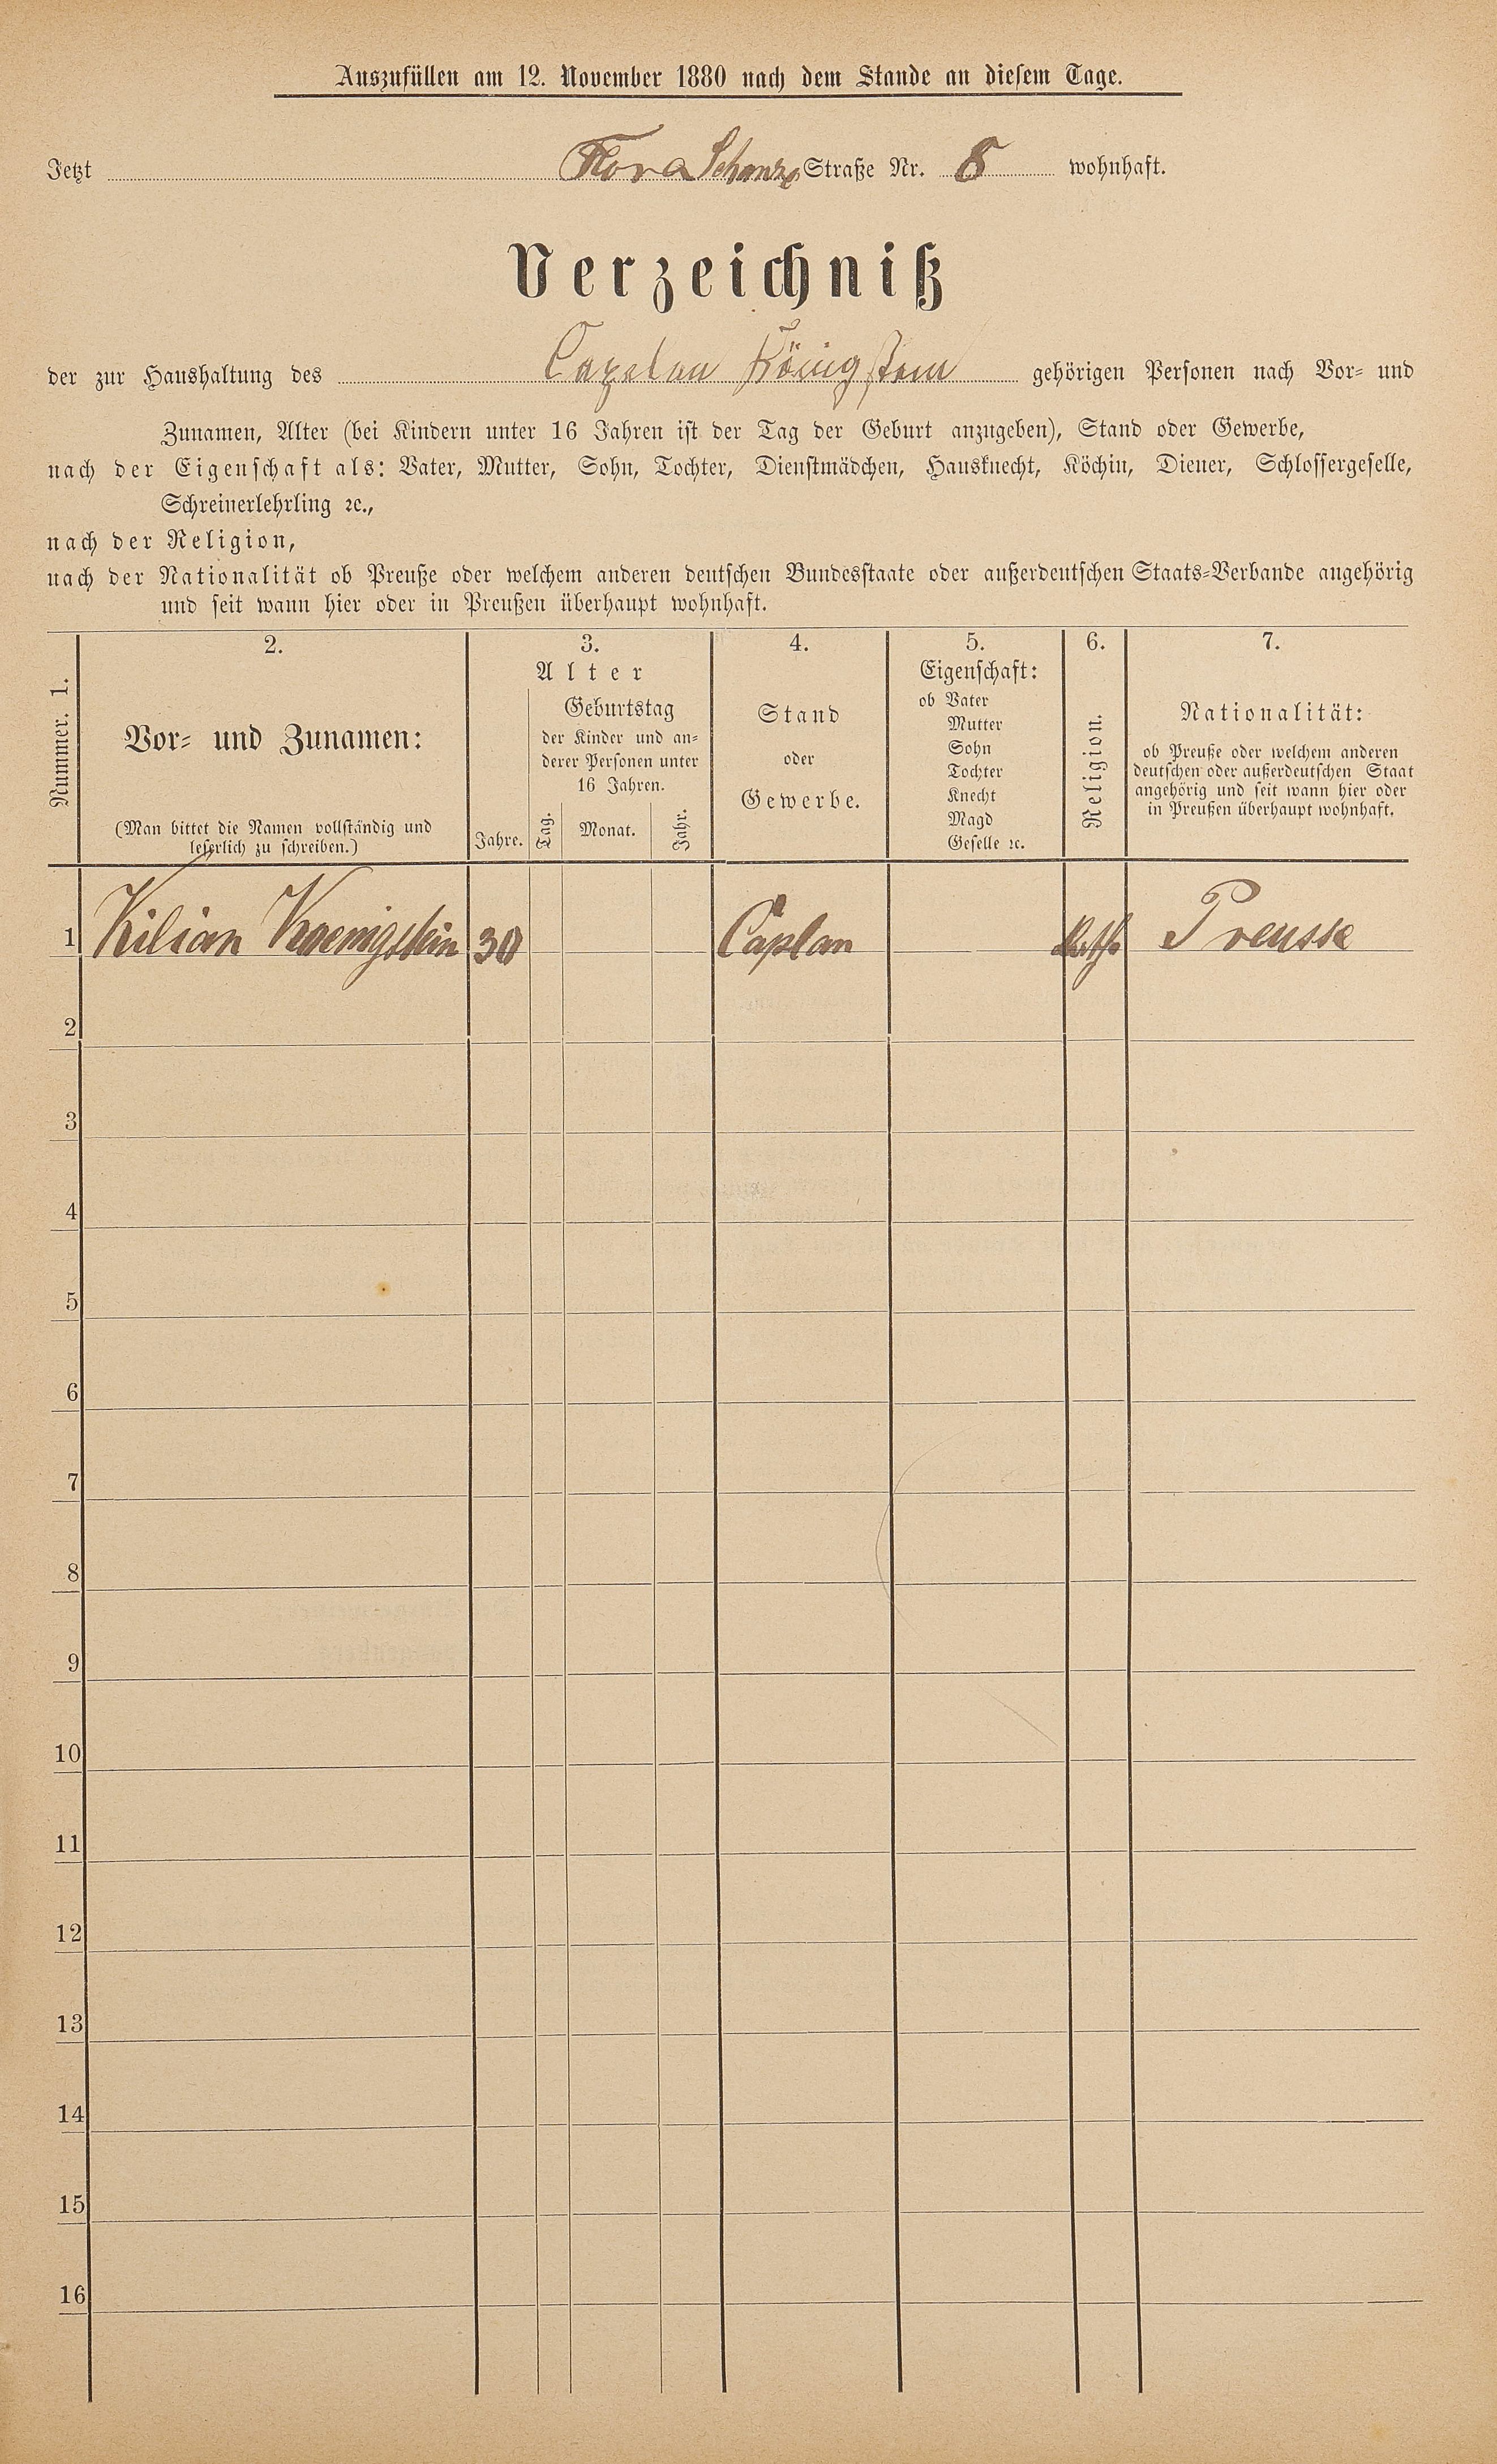 Auszufüllen am 12. November 1880 nach dem Stande an diesem Tage.
Jetzt Flora Schanze Straße Nr. 8 wohnhaft.
Verzeichniß
der zur Haushaltung des Capelan Königstein gehörigen Personen nach Vor- und
Zunamen, Alter (bei Kindern unter 16 Jahren ist der Tag der Geburt anzugeben), Stand oder Gewerbe,
nach der Eigenschaft als: Vater, Mutter, Sohn, Tochter, Dienstmädchen, Hausknecht, Köchin, Diener, Schlossergeselle,
Schreinerlehrling ꝛc.,
nach der Religion,
nach der Nationalität ob Preuße oder welchem anderen deutschen Bundesstaate oder außerdeutschen Staats-Verbande angehörig
und seit wann hier oder in Preußen überhaupt wohnhaft.
Nummer. 1.
2.
Vor- und Zunamen:
(Man bittet die Namen vollständig und
leserlich zu schreiben.)
3.
Alter
Jahre.
Geburtstag
der Kinder und an-
derer Personen unter
16 Jahren.
Tag.
Monat.
Jahr.
4.
Stand
oder
Gewerbe.
5.
Eigenschaft:
ob Vater
Mutter
Sohn
Tochter
Knecht
Magd
Geselle ꝛc.
6.
Religion.
7.
Nationalität:
ob Preuße oder welchem anderen
deutschen oder außerdeutschen Staat
angehörig und seit wann hier oder
in Preußen überhaupt wohnhaft.
1 Kilian Koenigstein 30 Caplan Kath Preusse
2
3
4
5
6
7
8
9
10
11
12
13
14
15
16